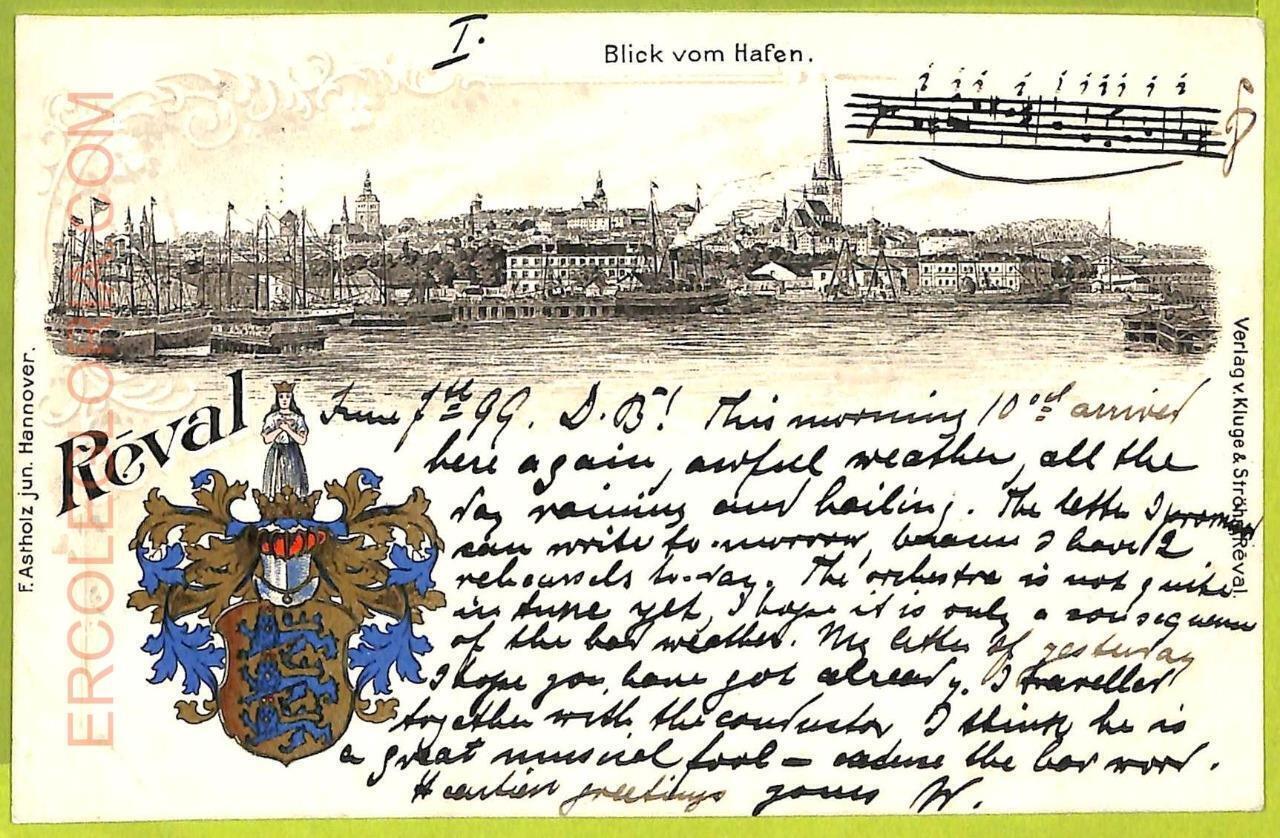 I.
Blick vom Hafen.
i i i i i i i i i i
Réval
June 7th 99. D. B! This morning 10 arrived
here again, awful weather, all the
day raining and hailing. The letter I promised
can write to-morrow, because I have 2
rehearsels to-day. The orchestra is not quite
in tune yet, I hope it is only a consequence
of the bad weather. My letter of yesterday
I hope you have got already. I travelled
together with the conductor, I think he is
a great musical fool – excuse the bad word.
Heartiest greetings yours W.
F. Astholz jun. Hannover.
Verlag v. Kluge & Ströhm, Réval.
ERCOLEGLORIA.COM